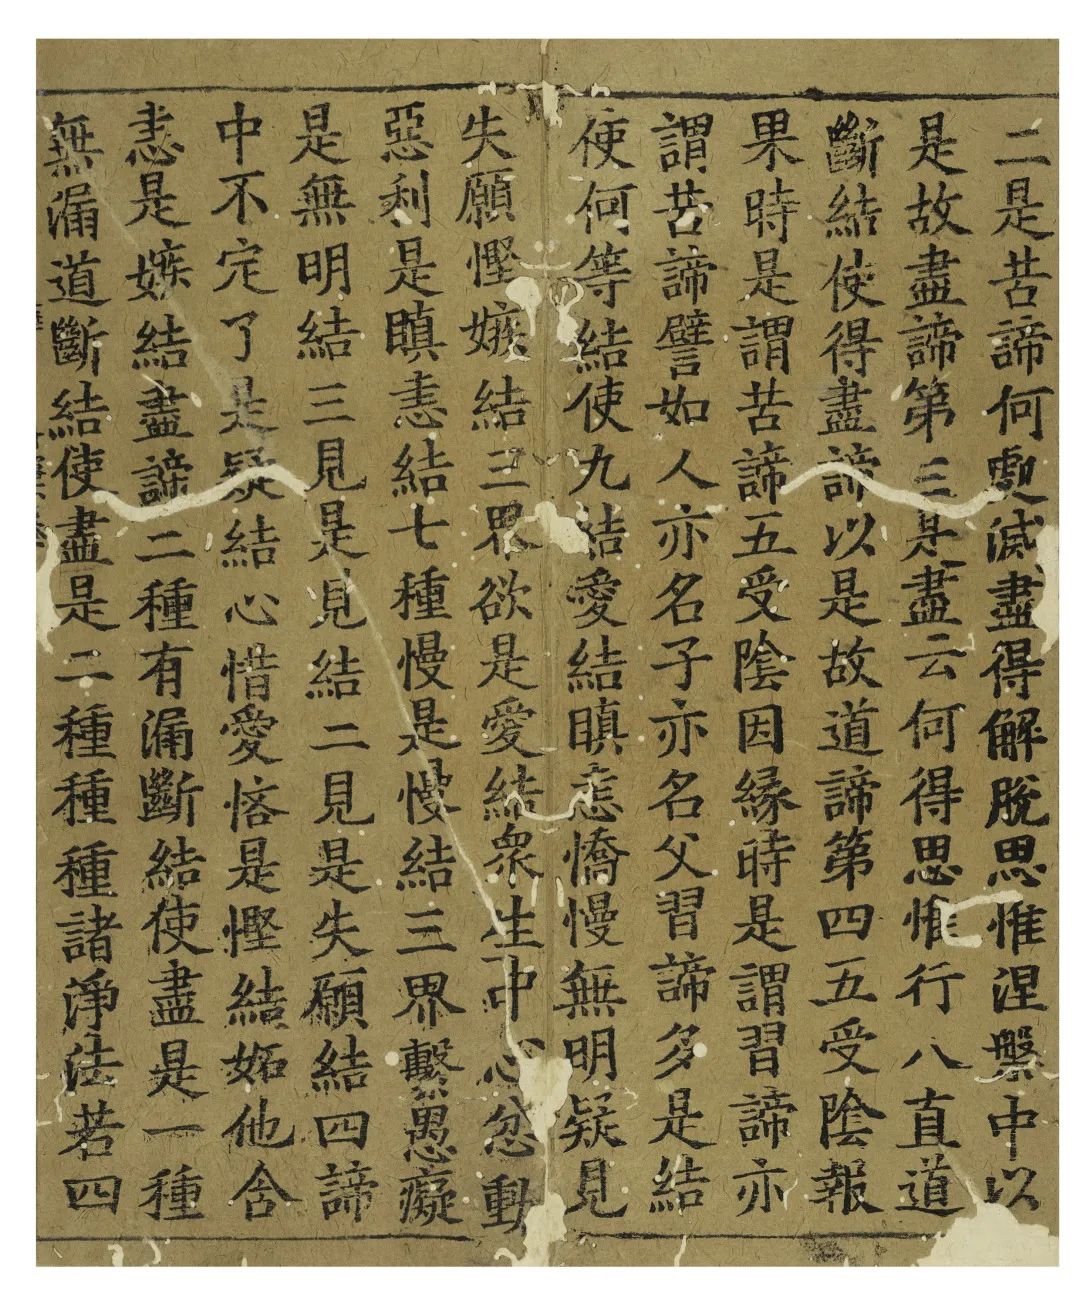 二是苦諦何處滅盡得解脫思惟涅槃中以
是故盡諦第三是盡云何得思惟行八直道
斷結使得盡諦以是故道諦第四五受陰報
果時是謂苦諦五受陰因緣時是謂習諦亦
謂苦諦譬如人亦名子亦名父習諦多是結
使何等結使九結愛結瞋恚憍慢無明疑見
失願慳嫉結三界欲是愛結衆生中心忿動
惡利是瞋恚結七種慢是慢結三界繫愚癡
是無明結三見是見結二見是失願結四諦
中不定了是疑結心惜愛悋是慳結妬他含
恚是嫉結盡諦二種有漏斷結使盡是一種
無漏道斷結使盡是二種種種諸淨法若四